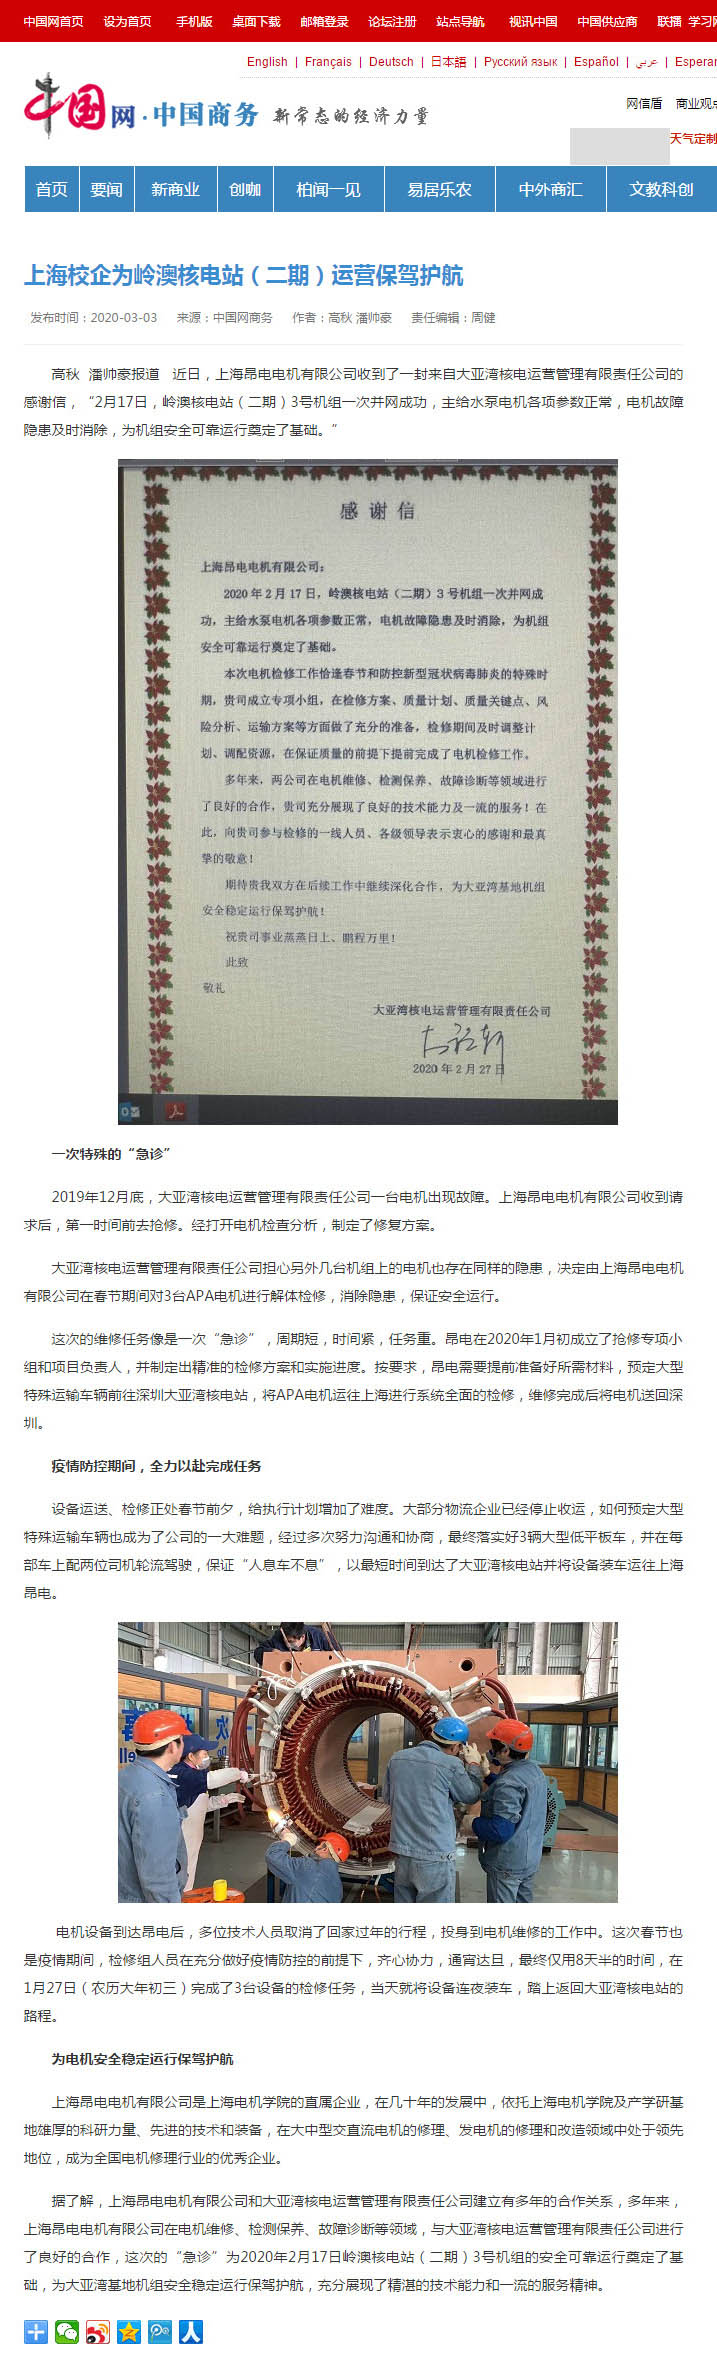 中国网首页 设为首页 手机版 桌面下载 邮箱登录 论坛注册 站点导航 视讯中国 中国供应商 联播 学习
English | Français | Deutsch | 日本語 | Русский язык | Español | عربي | Esperan
中国网·中国商务 新常态的经济力量
网信盾 商业观点
天气定制
首页 要闻 新商业 创咖 柏闻一见 易居乐农 中外商汇 文教科创
上海校企为岭澳核电站（二期）运营保驾护航
发布时间：2020-03-03 来源：中国网商务 作者：高秋 潘帅豪 责任编辑：周健
高秋 潘帅豪报道 近日，上海昂电电机有限公司收到了一封来自大亚湾核电运营管理有限责任公司的
感谢信，“2月17日，岭澳核电站（二期）3号机组一次并网成功，主给水泵电机各项参数正常，电机故障
隐患及时消除，为机组安全可靠运行奠定了基础。”
感谢信
上海昂电电机有限公司：
2020年2月17日，岭澳核电站（二期）3号机组一次并网成
功，主给水泵电机各项参数正常，电机故障隐患及时消除，为机组
安全可靠运行奠定了基础。
本次电机检修工作恰逢春节和防控新型冠状病毒肺炎的特殊时
期，贵司成立专项小组，在检修方案、质量计划、质量关键点、风
险分析、运输方案等方面做了充分的准备，检修期间及时调整计
划、调配资源，在保证质量的前提下提前完成了电机检修工作。
多年来，两公司在电机维修、检测保养、故障诊断等领域进行
了良好的合作，贵司充分展现了良好的技术能力及一流的服务！在
此，向贵司参与检修的一线人员、各级领导表示衷心的感谢和最真
挚的敬意！
期待贵我双方在后续工作中继续深化合作，为大亚湾基地机组
安全稳定运行保驾护航！
祝贵司事业蒸蒸日上、鹏程万里！
此致
敬礼
大亚湾核电运营管理有限责任公司
2020年2月27日
一次特殊的“急诊”
2019年12月底，大亚湾核电运营管理有限责任公司一台电机出现故障。上海昂电电机有限公司收到请
求后，第一时间前去抢修。经打开电机检查分析，制定了修复方案。
大亚湾核电运营管理有限责任公司担心另外几台机组上的电机也存在同样的隐患，决定由上海昂电电机
有限公司在春节期间对3台APA电机进行解体检修，消除隐患，保证安全运行。
这次的维修任务像是一次“急诊”，周期短，时间紧，任务重。昂电在2020年1月初成立了抢修专项小
组和项目负责人，并制定出精准的检修方案和实施进度。按要求，昂电需要提前准备好所需材料，预定大型
特殊运输车辆前往深圳大亚湾核电站，将APA电机运往上海进行系统全面的检修，维修完成后将电机送回深
圳。
疫情防控期间，全力以赴完成任务
设备运送、检修正处春节前夕，给执行计划增加了难度。大部分物流企业已经停止收运，如何预定大型
特殊运输车辆也成为了公司的一大难题，经过多次努力沟通和协商，最终落实好3辆大型低平板车，并在每
部车上配两位司机轮流驾驶，保证“人息车不息”，以最短时间到达了大亚湾核电站并将设备装车运往上海
昂电。
电机设备到达昂电后，多位技术人员取消了回家过年的行程，投身到电机维修的工作中。这次春节也
是疫情期间，检修组人员在充分做好疫情防控的前提下，齐心协力，通宵达旦，最终仅用8天半的时间，在
1月27日（农历大年初三）完成了3台设备的检修任务，当天就将设备连夜装车，踏上返回大亚湾核电站的
路程。
为电机安全稳定运行保驾护航
上海昂电电机有限公司是上海电机学院的直属企业，在几十年的发展中，依托上海电机学院及产学研基
地雄厚的科研力量、先进的技术和装备，在大中型交直流电机的修理、发电机的修理和改造领域中处于领先
地位，成为全国电机修理行业的优秀企业。
据了解，上海昂电电机有限公司和大亚湾核电运营管理有限责任公司建立有多年的合作关系，多年来，
上海昂电电机有限公司在电机维修、检测保养、故障诊断等领域，与大亚湾核电运营管理有限责任公司进行
了良好的合作，这次的“急诊”为2020年2月17日岭澳核电站（二期）3号机组的安全可靠运行奠定了基
础，为大亚湾基地机组安全稳定运行保驾护航，充分展现了精湛的技术能力和一流的服务精神。